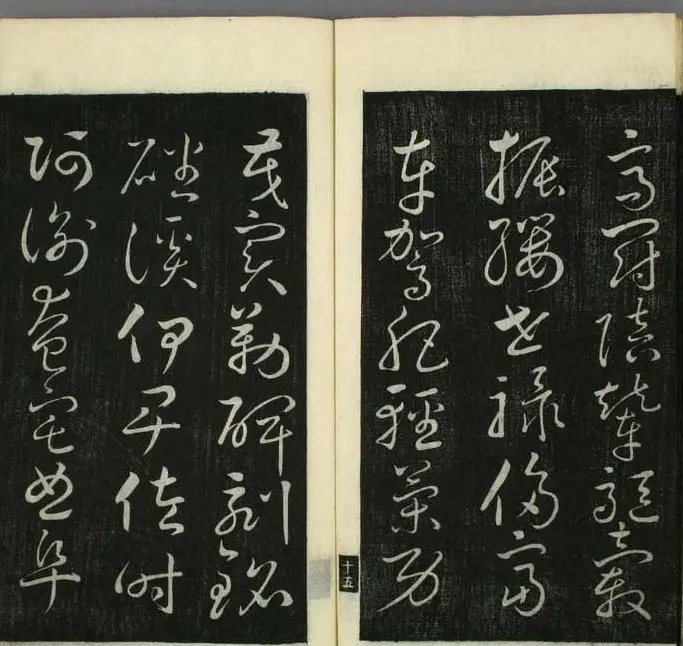 高冠陪輦驅轂
振纓世祿侈富
車駕肥輕策功
十五
茂實勒碑刻銘
磻溪伊尹佐時
阿衡奄宅曲阜